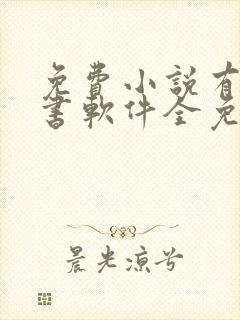 免費小説有
書軟件全免
晨光凉兮